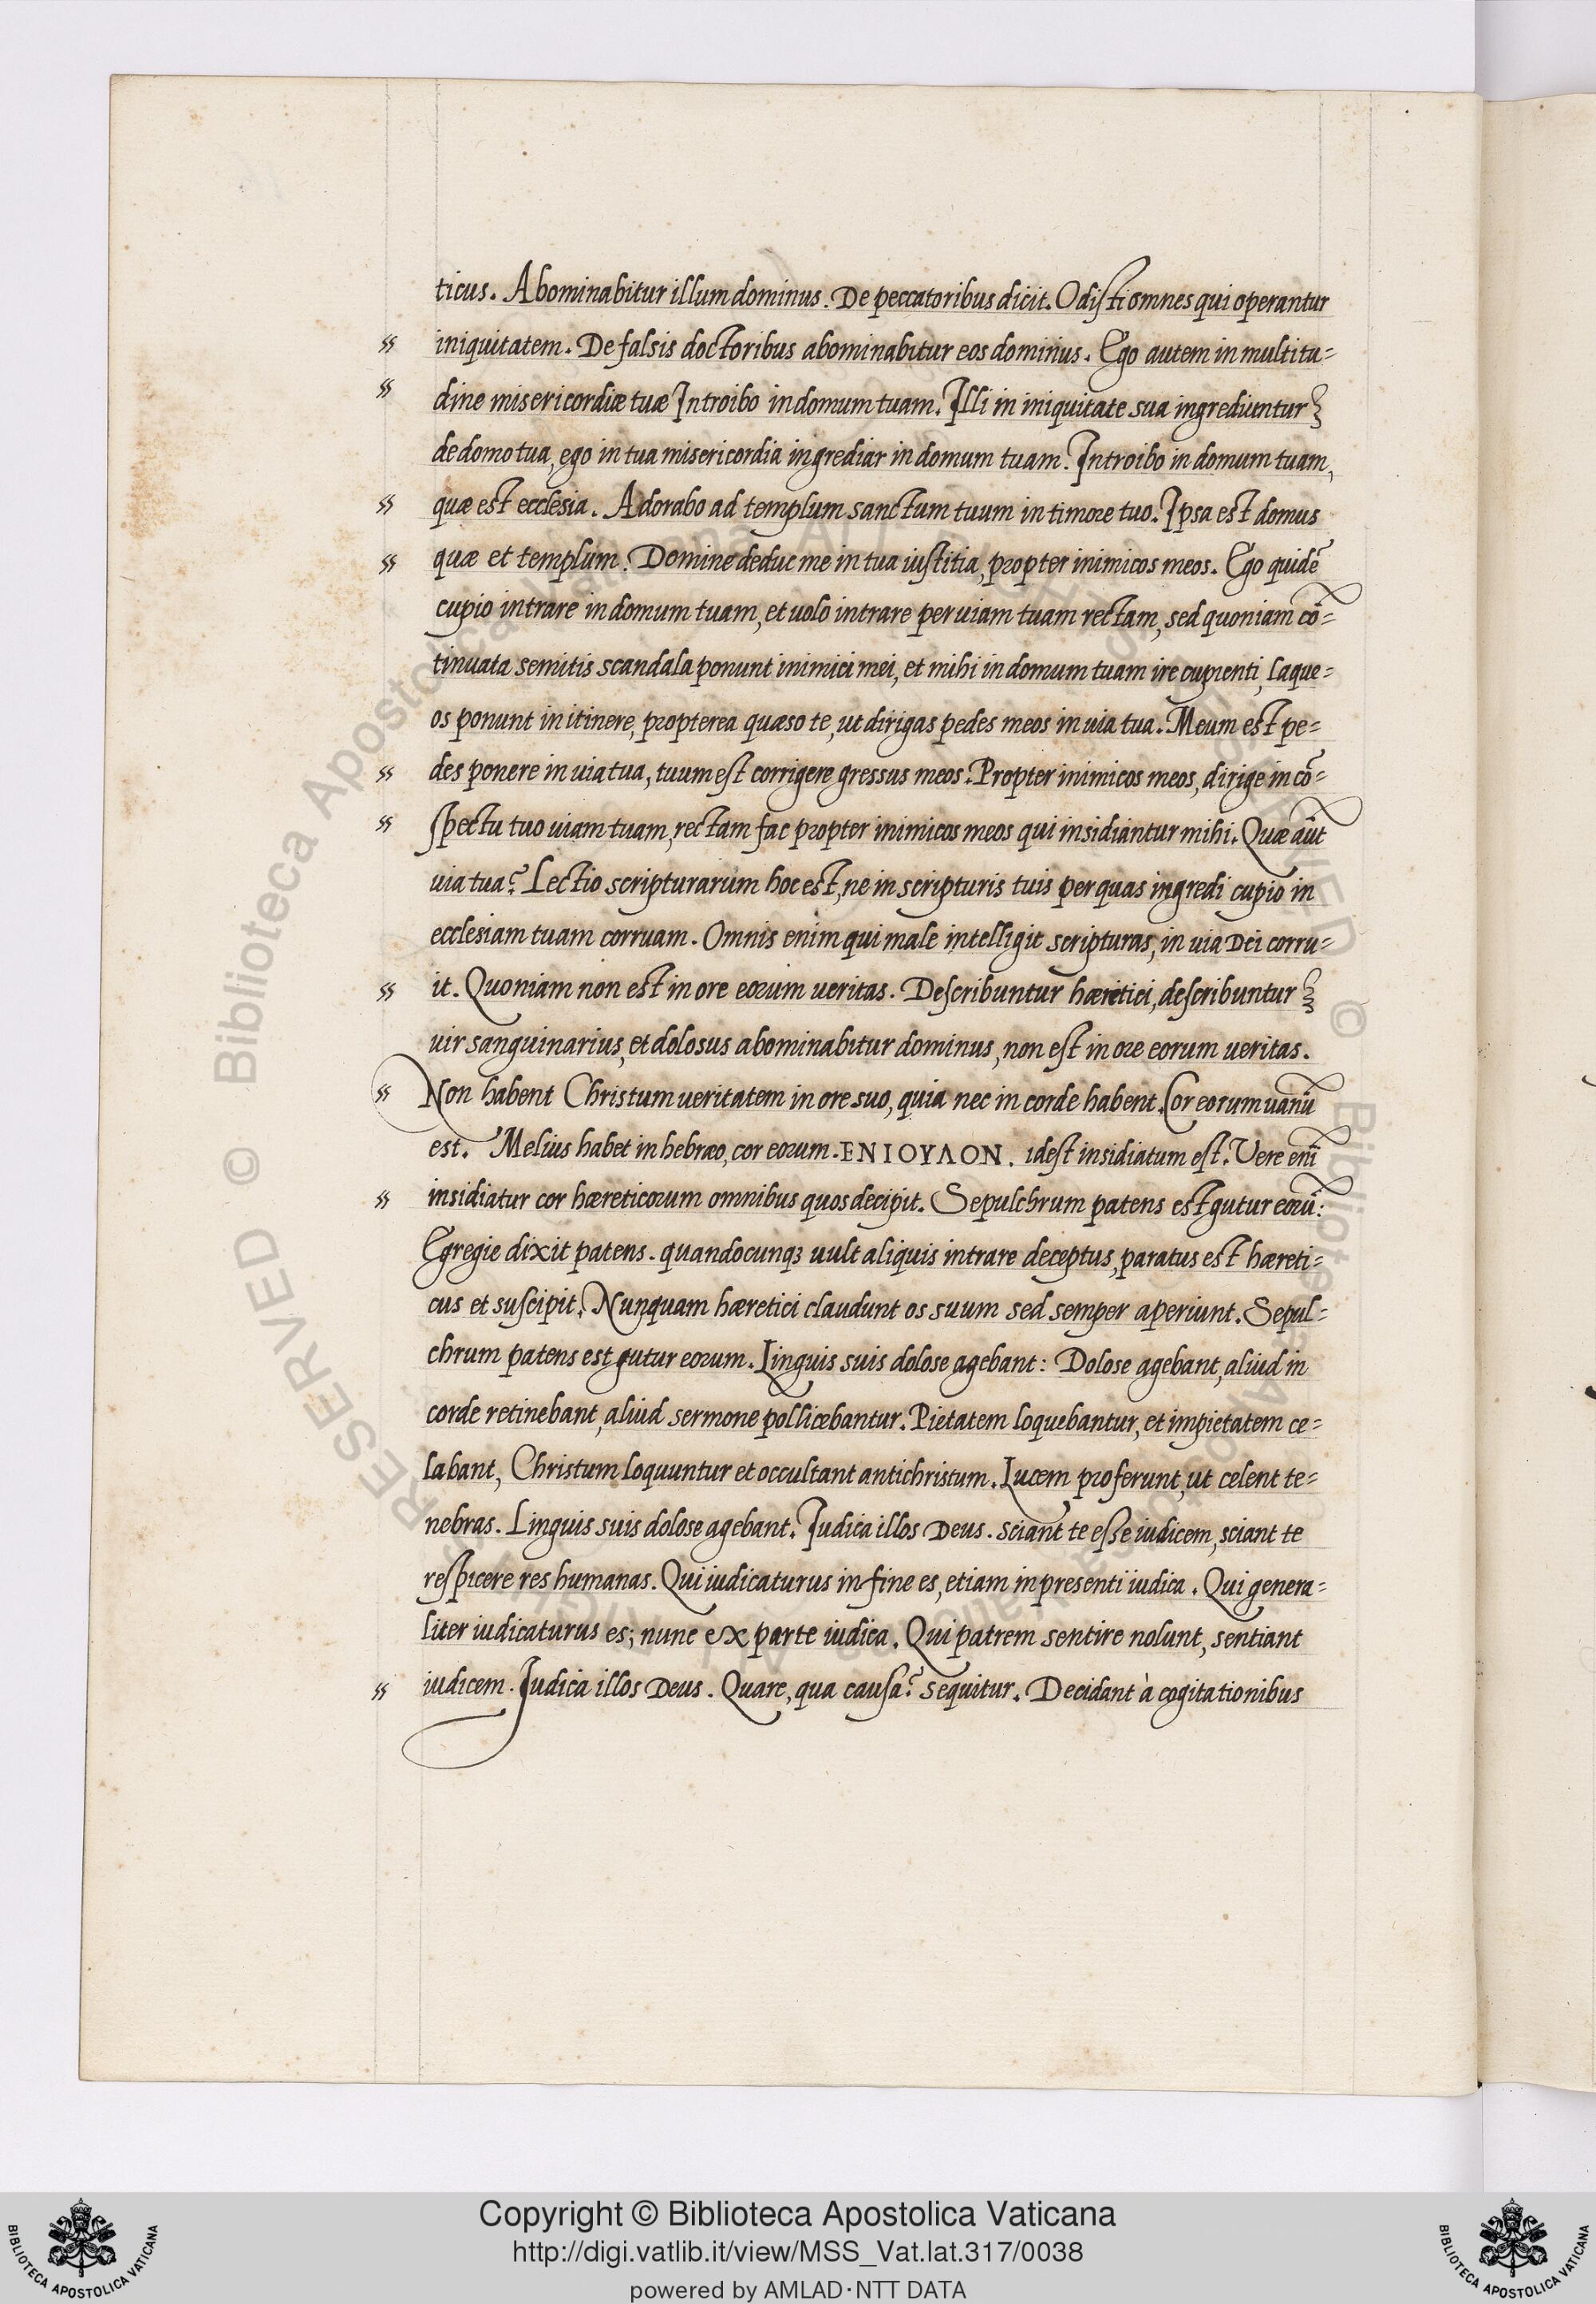 ticus. Abominabitur illum dominus. De peccatoribus dicit. Odisti omnes qui operantur
iniquitatem. De falsis doctoribus abominabitur eos dominus. Ego autem in multitu=
dine misericordiæ tuæ Introibo in domum tuam. Illi in iniquitate sua ingrediuntur
de domo tua, ego in tua misericordia ingrediar in domum tuam. Introibo in domum tuam,
quæ est ecclesia. Adorabo ad templum sanctum tuum in timore tuo. Ipsa est domus
quæ et templum. Domine deduc me in tua iustitia, propter inimicos meos. Ego quidē
cupio intrare in domum tuam, et uolo intrare per uiam tuam rectam, sed quoniam cō=
tinuata semitis scandala ponunt inimici mei, et mihi in domum tuam ire cupienti, laque=
os ponunt in itinere, propterea quæso te, ut dirigas pedes meos in uia tua. Meum est pe=
des ponere in uia tua, tuum est corrigere gressus meos. Propter inimicos meos, dirige in cō=
spectu tuo uiam tuam, rectam fac propter inimicos meos qui insidiantur mihi. Quæ aūt
uia tua? Lectio scripturarum hoc est, ne in scripturis tuis per quas ingredi cupio in
ecclesiam tuam corruam. Omnis enim qui male intelligit scripturas, in uia Dei corru=
it. Quoniam non est in ore eorum ueritas. Describuntur hæretici, describuntur
uir sanguinarius, et dolosus abominabitur dominus, non est in ore eorum ueritas.
Non habent Christum ueritatem in ore suo, quia nec in corde habent. Cor eorum uanū
est. Melius habet in hebræo, cor eorum. ΕΝΙΟΥΛΟΝ. idest insidiatum est. Vere enī
insidiatur cor hæreticorum omnibus quos decipit. Sepulchrum patens est gutur eorū:
Egregie dixit patens. quandocunqꝫ uult aliquis intrare deceptus, paratus est hæreti=
cus et suscipit. Nunquam hæretici claudunt os suum sed semper aperiunt. Sepul=
chrum patens est gutur eorum. Linguis suis dolose agebant: Dolose agebant, aliud in
corde retinebant, aliud sermone pollicebantur. Pietatem loquebantur, et impietatem ce=
labant, Christum loquuntur et occultant antichristum. Lucem proferunt, ut celent te=
nebras. Linguis suis dolose agebant. Iudica illos Deus. sciant te esse iudicem, sciant te
respicere res humanas. Qui iudicaturus in fine es, etiam in presenti iudica. Qui genera=
liter iudicaturus es; nunc ex parte iudica. Qui patrem sentire nolunt, sentiant
iudicem. Iudica illos Deus. Quare, qua causa? sequitur. Decidant à cogitationibus
Copyright © Biblioteca Apostolica Vaticana
http://digi.vatlib.it/view/MSS_Vat.lat.317/0038
powered by AMLAD·NTT DATA